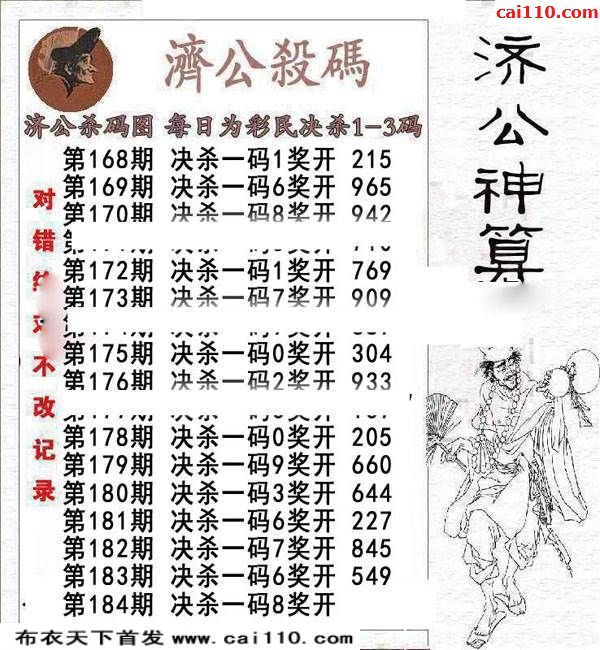 cai110.com
濟公殺碼
济公神算
济公杀码图 每日为彩民决杀1-3码
第168期 决杀一码1奖开 215
第169期 决杀一码6奖开 965
第170期 决杀一码8奖开 942
第172期 决杀一码1奖开 769
第173期 决杀一码7奖开 909
第175期 决杀一码0奖开 304
第176期 决杀一码2奖开 933
第178期 决杀一码0奖开 205
第179期 决杀一码9奖开 660
第180期 决杀一码3奖开 644
第181期 决杀一码6奖开 227
第182期 决杀一码7奖开 845
第183期 决杀一码6奖开 549
第184期 决杀一码8奖开
对错 不改记录
布衣天下首发 www.cai110.com